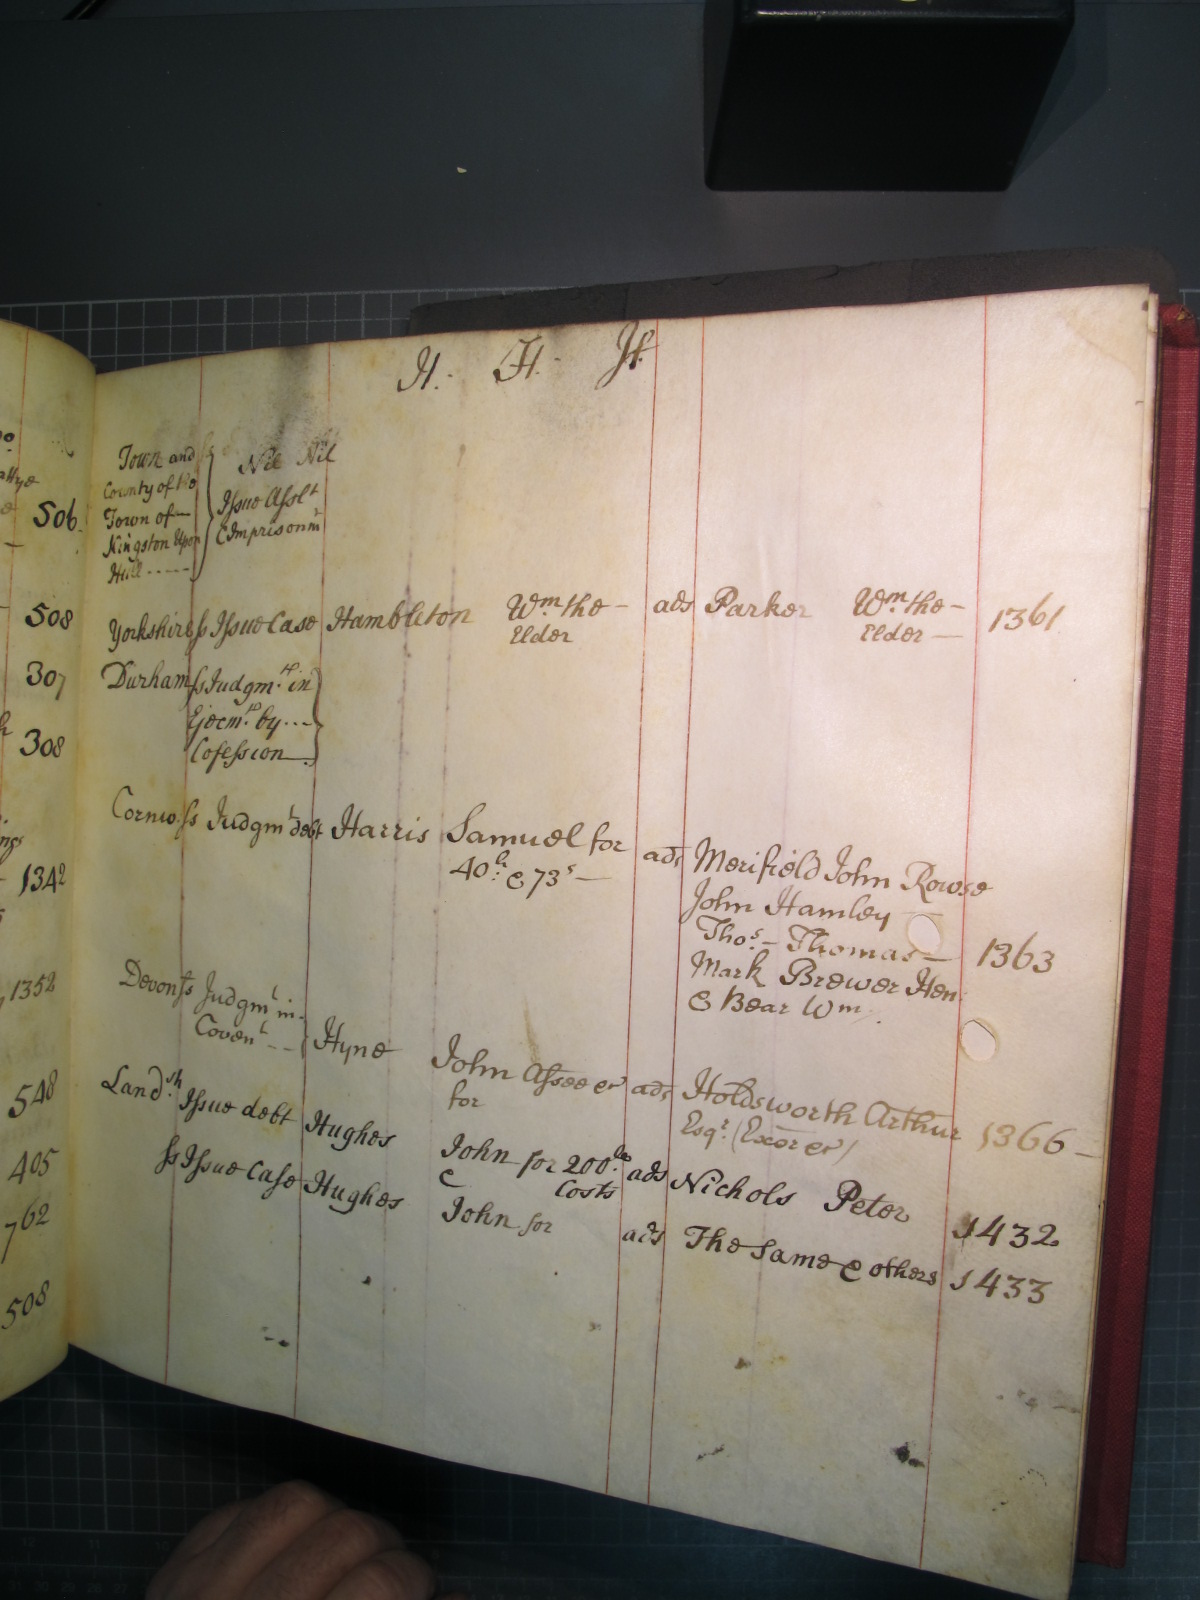 H. H. H.
Town and
County of the
Town of—
Kingston Upon
Hull -----
Nil Nil
Issue Assl.t
& Imprisonm.t
Yorkshire ss Issue Case Hambleton W.m the — Elder ads Parker W.m the — Elder — 1361
Durham ss Judgm.t in
Ejecm.t by ---
Cofession
Cornw. ss Judgm.t debt Harris Samuel for
40.li & 73.s —
ads Merifield John Rowse
John Hamley
Tho.s — Thomas — 1363
Mark Brewer Hen
& Bear W.m
Devon ss Judgm.t in
Coven.t -- Hyne John Assee &r
for
ads Holdsworth Arthur 1366 —
Esq.r (Exor &r)
Land.sh Issue debt Hughes John for 200.li
& Costs ads Nichols Peter 1432
ss Issue Case Hughes John for ads The Same & others 1433
506
508
307
308
1342
1352
548
405
762
508